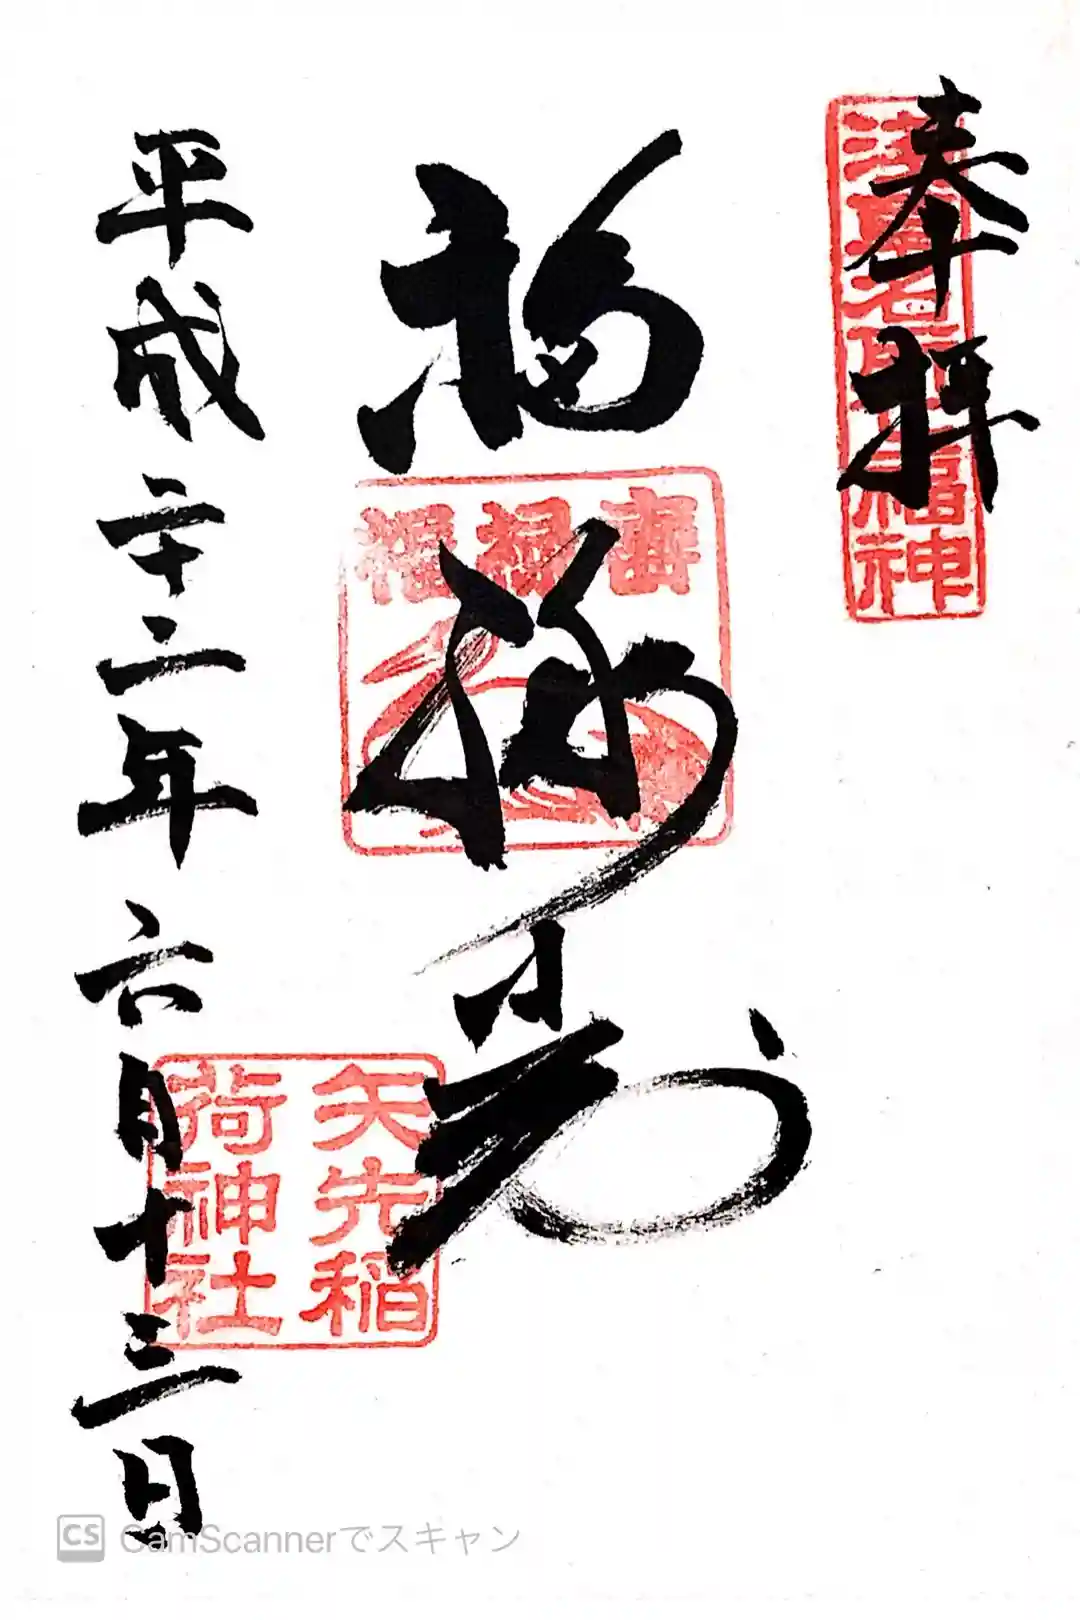 奉拝
浅草名所七福神
福禄寿
福禄寿
矢先稲
荷神社
平成二十二年六月十三日
CS CamScannerでスキャン